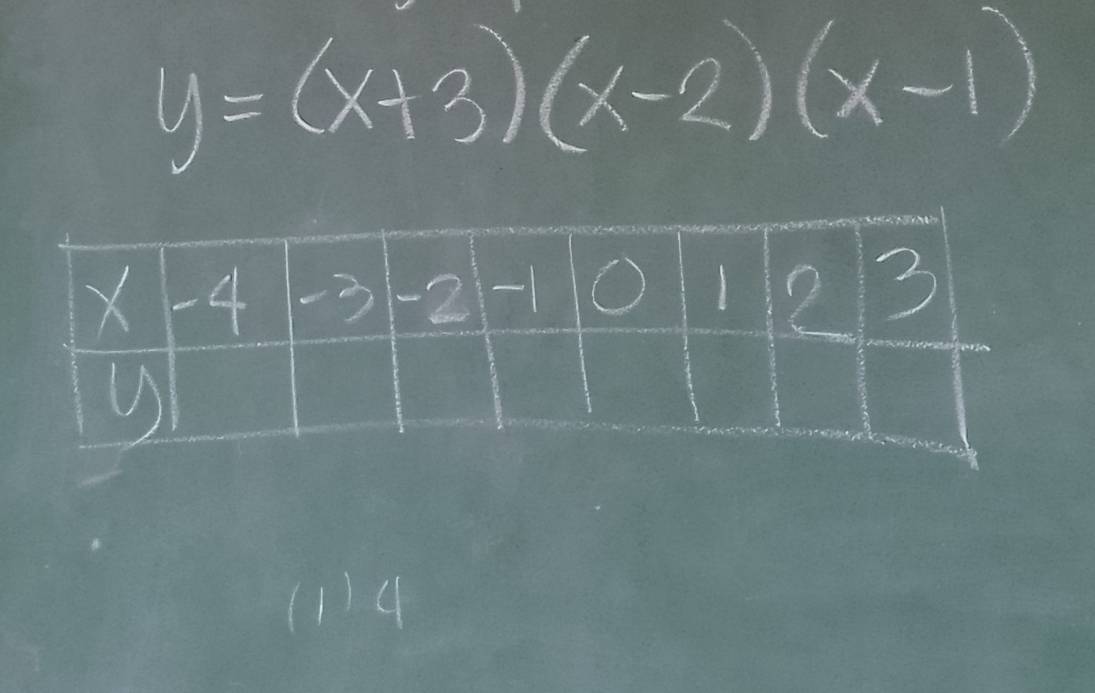 y=(x+3)(x-2)(x-1)
x -4 -3 -2 -1 0 1 2 3
y
(1)4